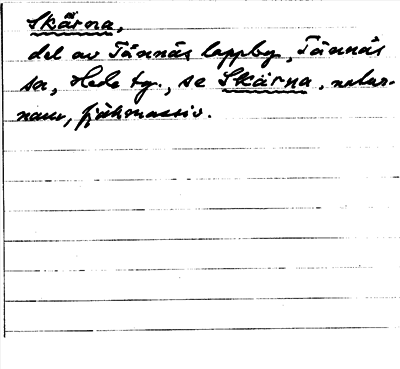 Skärna,
del av Tännäs lappby, Tännäs
sn, Hede tg., se Skärna, natur-
namn, fjällmassiv.